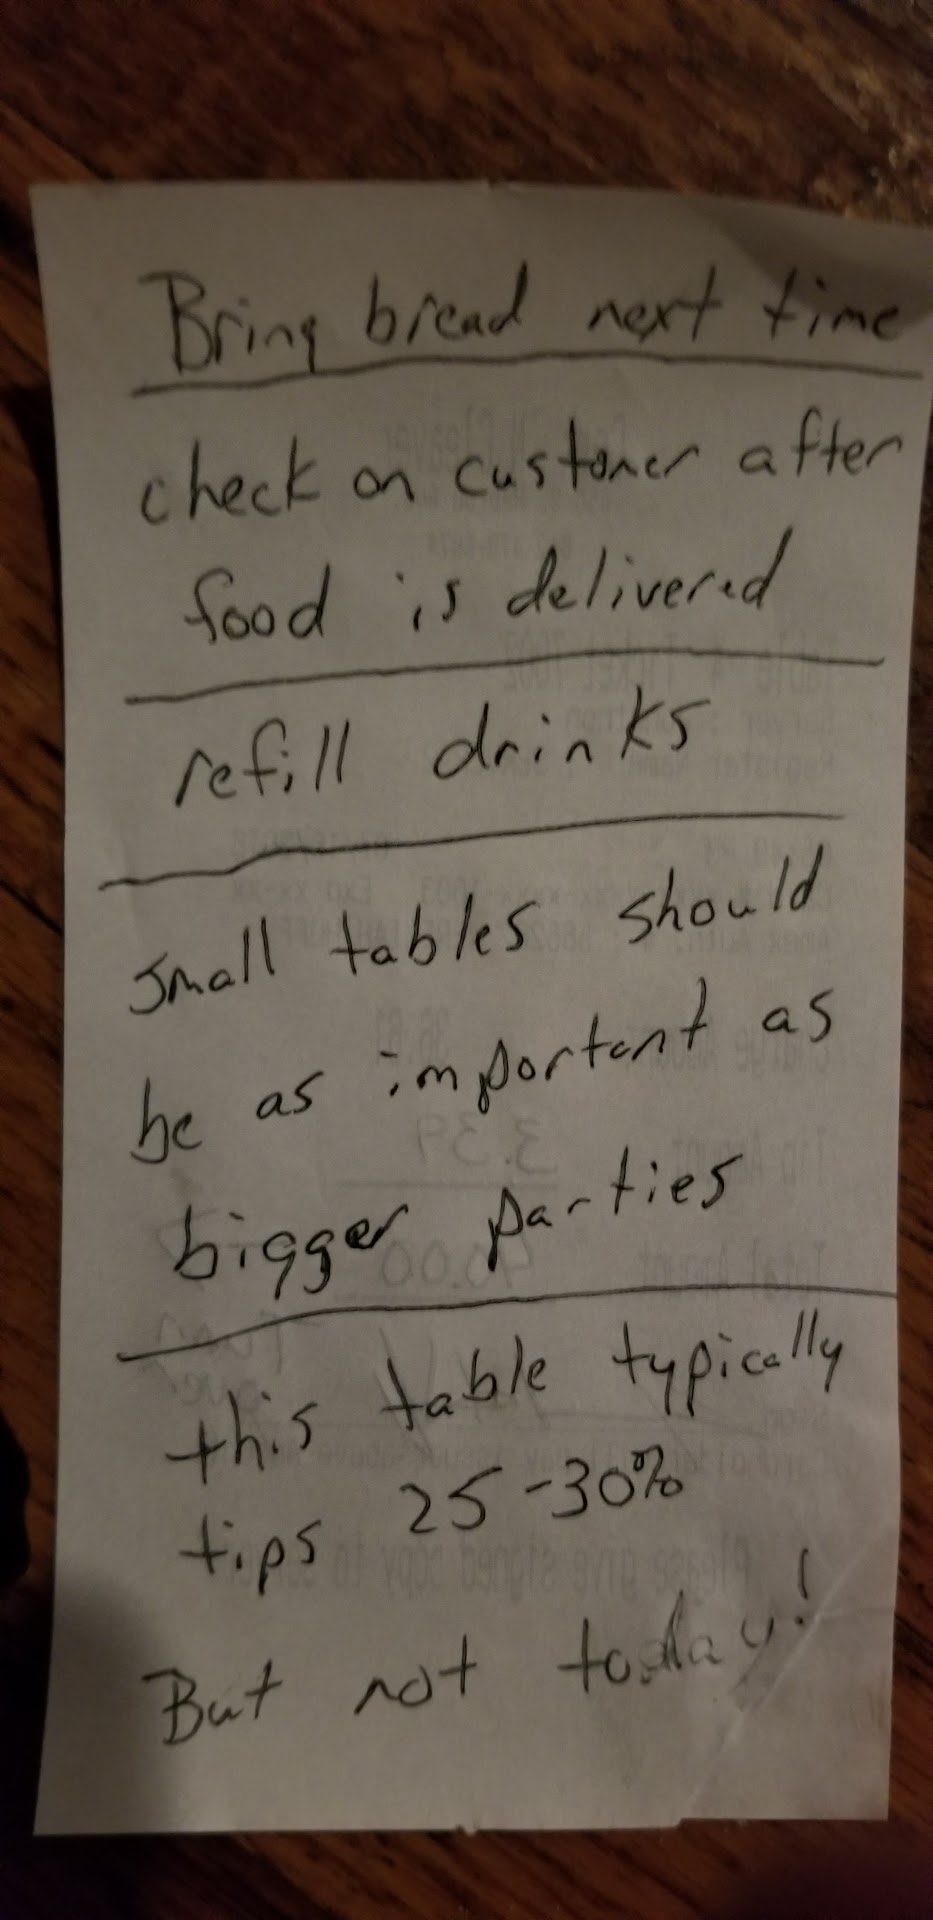 Bring bread next time
check on customer after
food is delivered
refill drinks
small tables should
be as important as
bigger parties
this table typically
tips 25-30%
But not today!